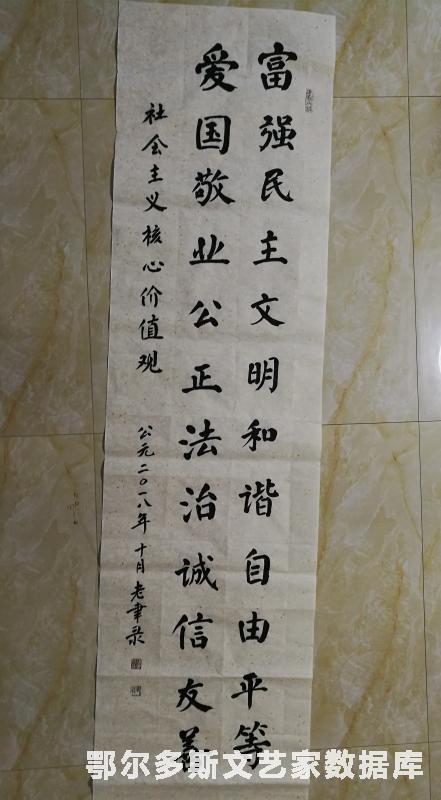 富强民主文明和谐自由平等
爱国敬业公正法治诚信友善
社会主义核心价值观
公元二〇一八年十月老聿录
鄂尔多斯文艺家数据库